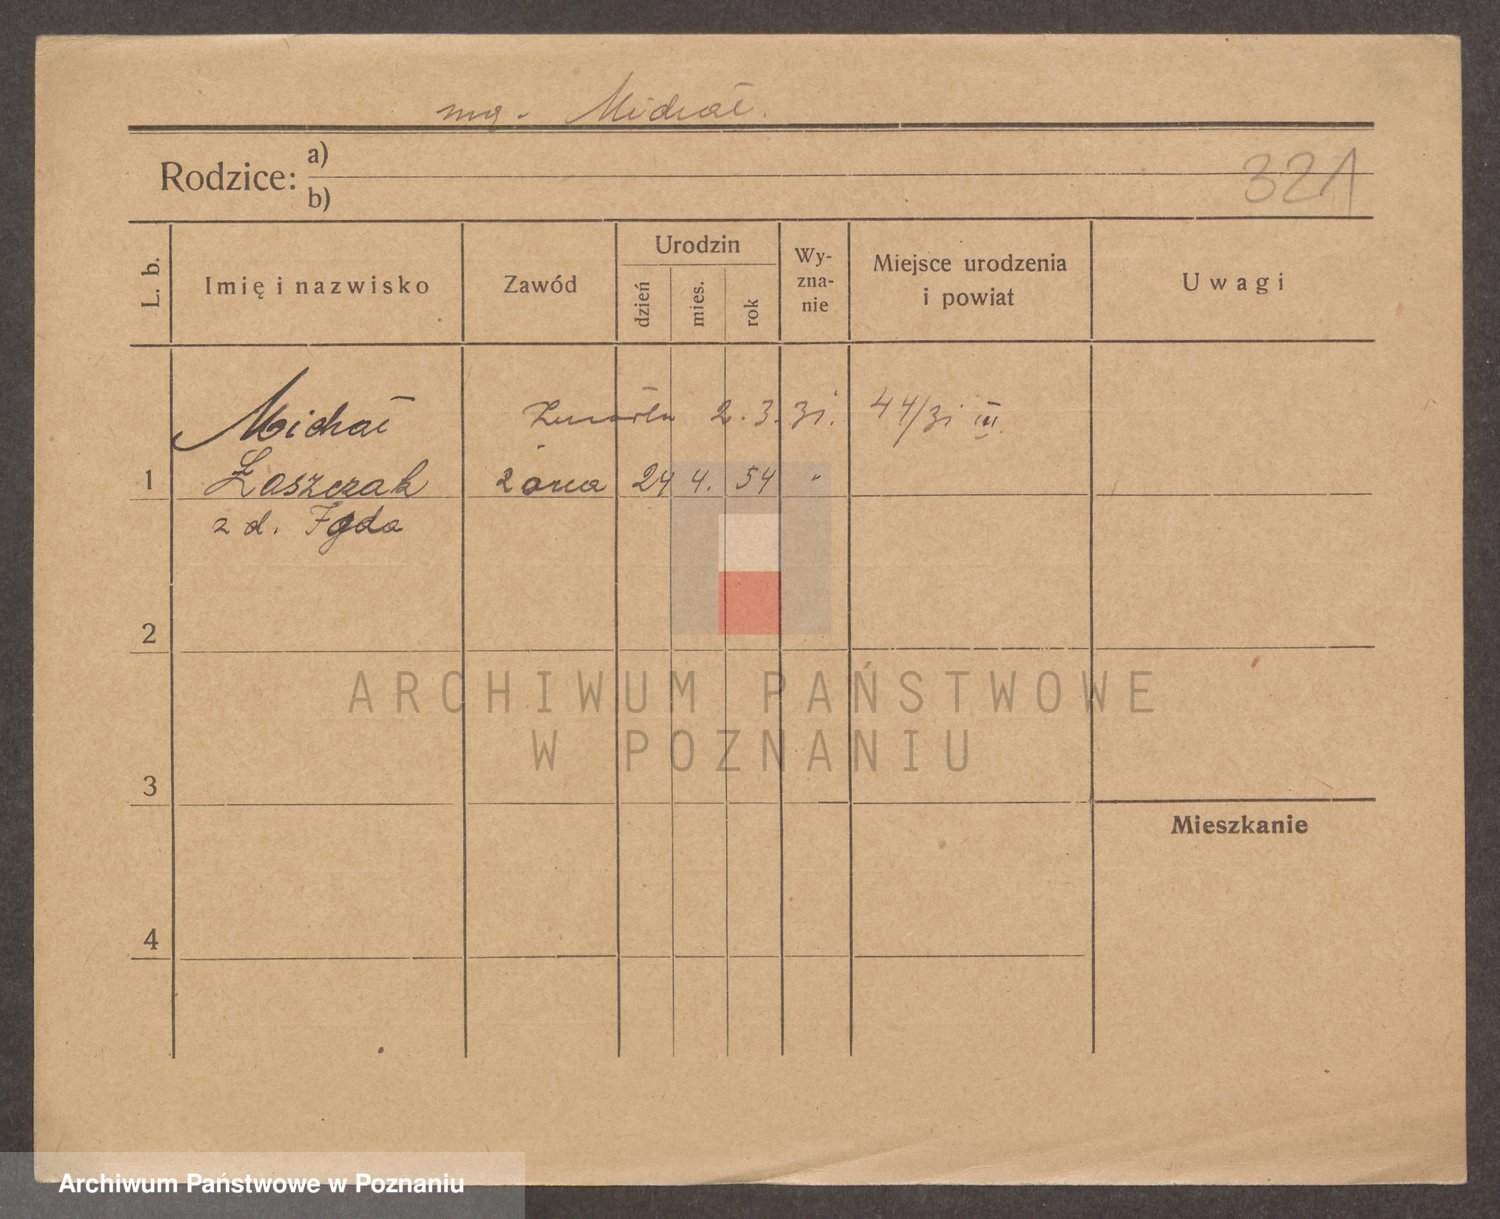 mą. Michał.
Rodzice: a)
b)
321
L. b.
Imię i nazwisko
Zawód
Urodzin
dzień
mies.
rok
Wy-
zna-
nie
Miejsce urodzenia
i powiat
Uwagi
Michał
zmarła 2.3.31. 44/31 III.
1 Łaszczak żona 24 4. 54 "
z d. Igda
2
3
4
Mieszkanie
ARCHIWUM PAŃSTWOWE
W POZNANIU
Archiwum Państwowe w Poznaniu